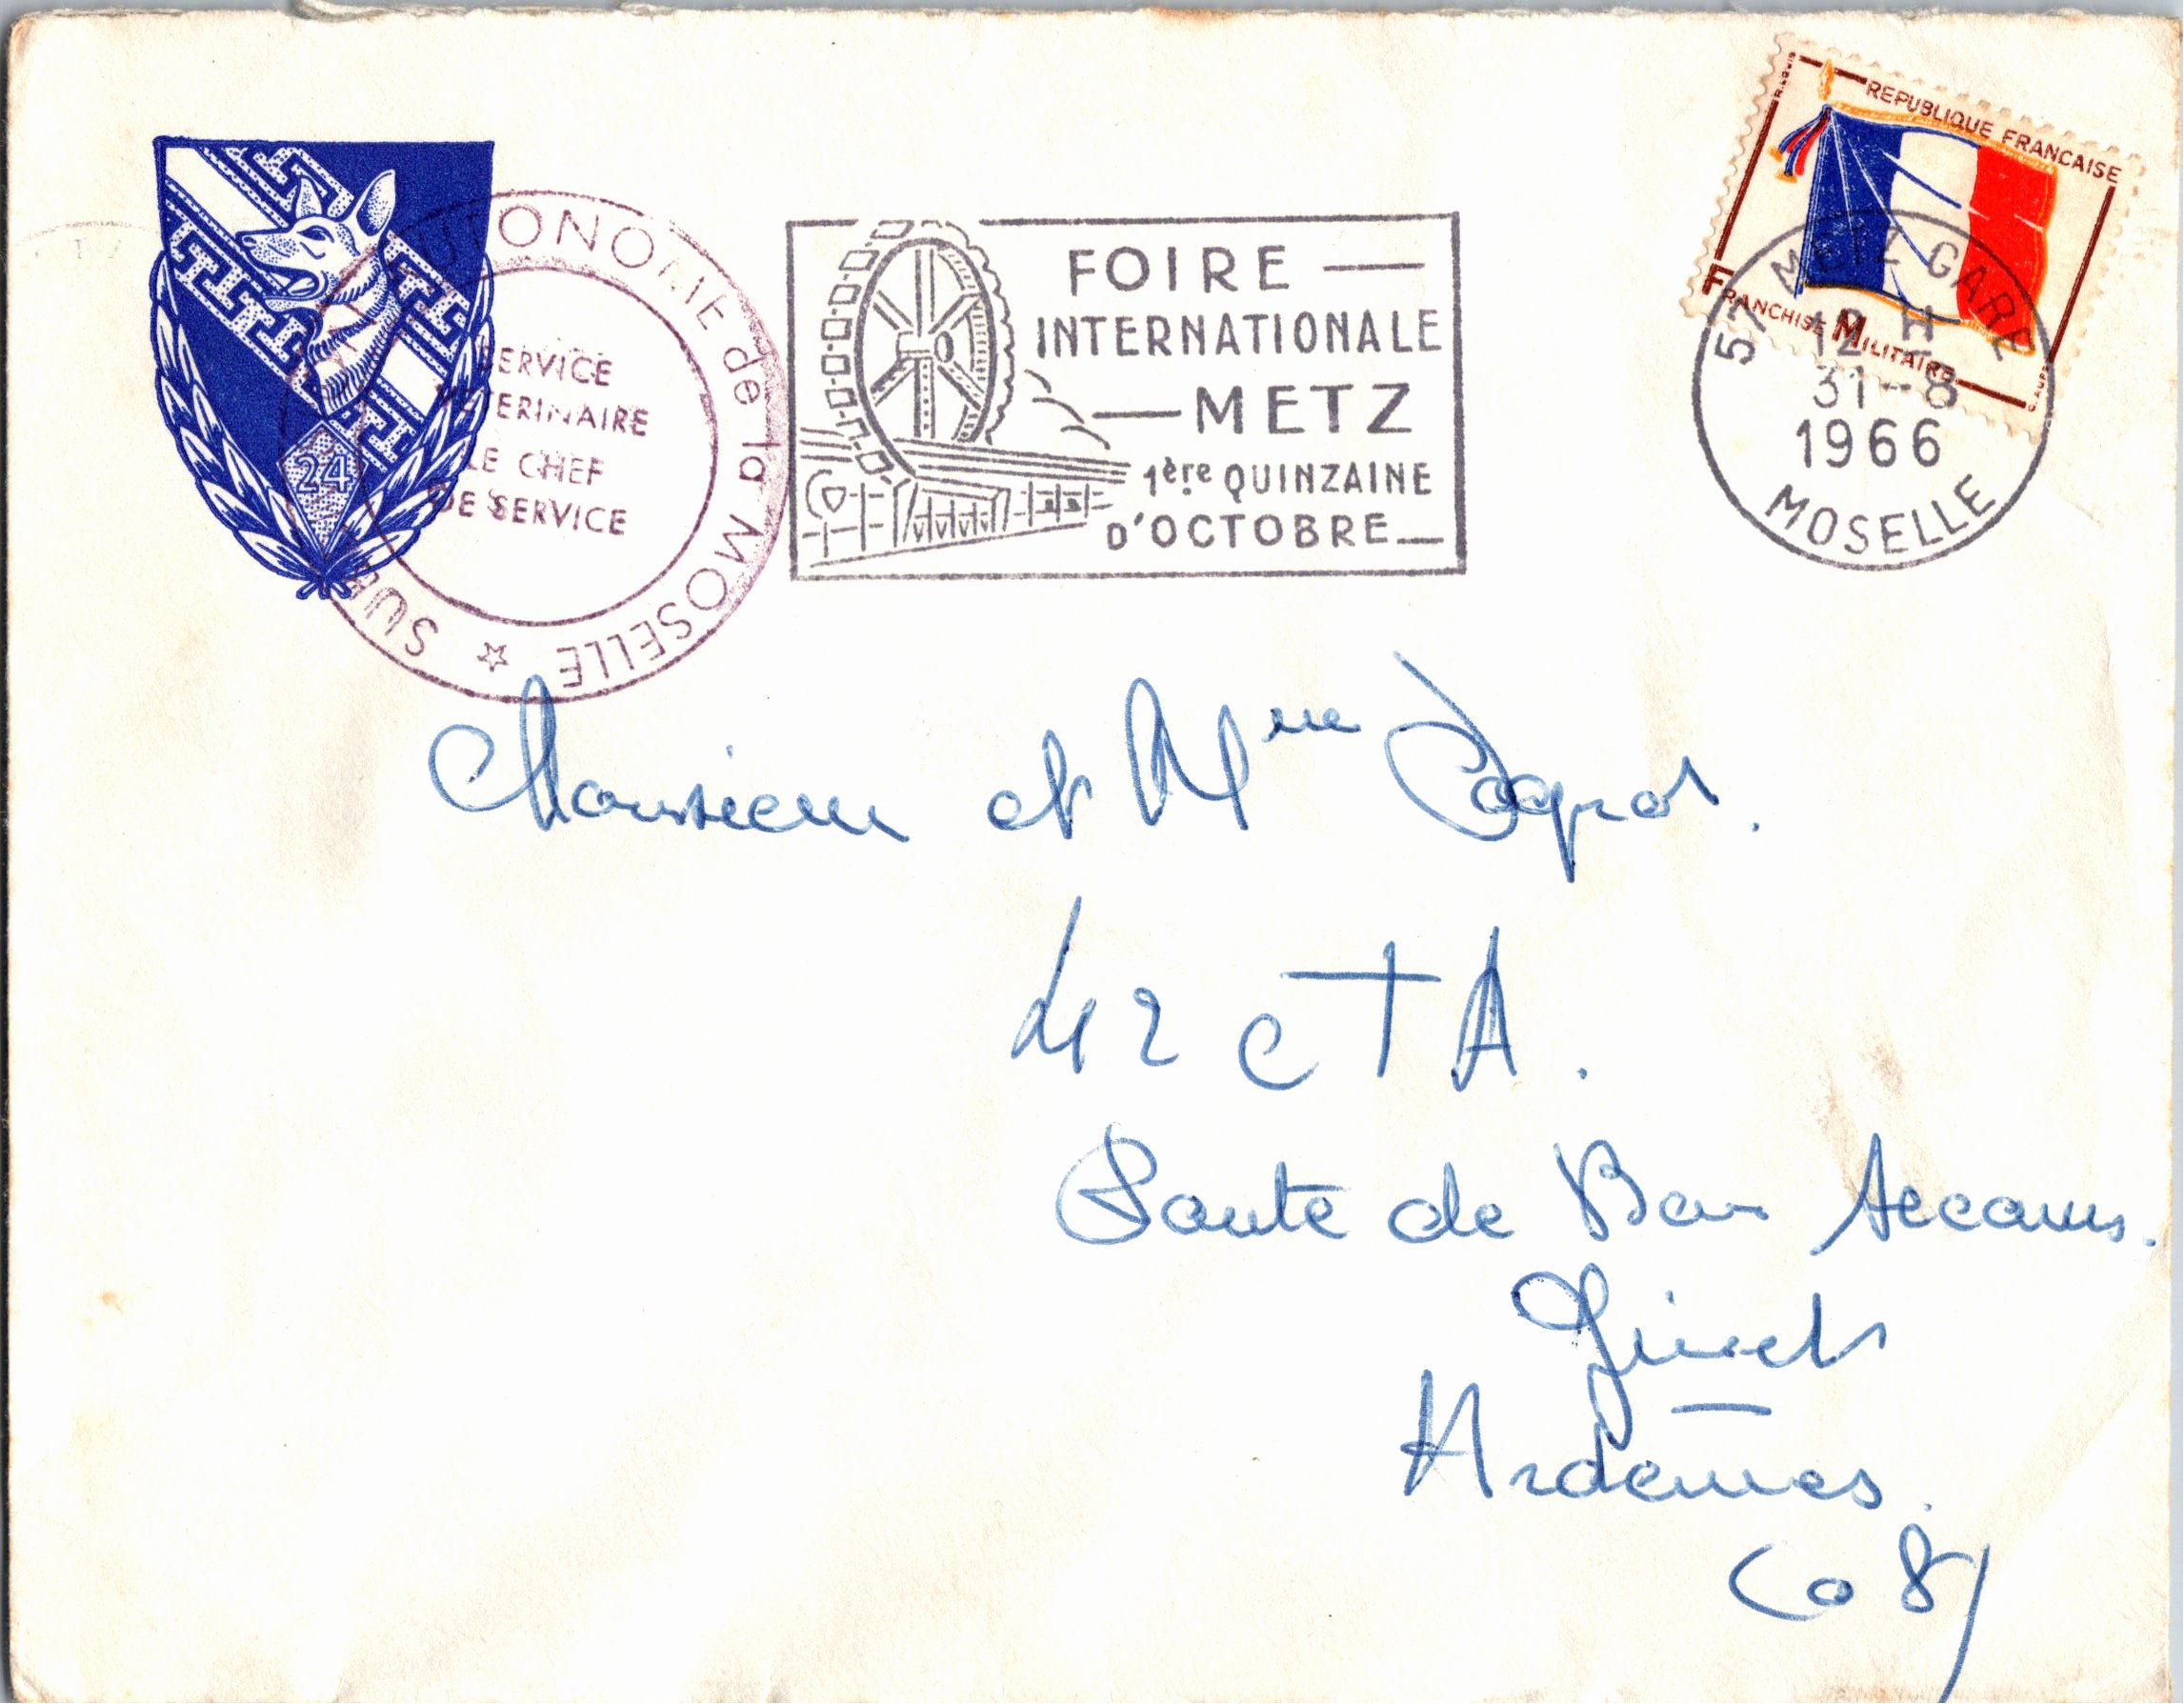 24
AUTONOME de la MOSELLE
SUB
SERVICE
VETERINAIRE
LE CHEF
DE SERVICE
FOIRE
INTERNATIONALE
METZ
1ère QUINZAINE
D'OCTOBRE
REPUBLIQUE FRANCAISE
FRANCHISE MILITAIRE
57 METZ GARE
12 H
31-8
1966
MOSELLE
Monsieur et Mme
42 CTA.
Route de Bon Secours.
Givet
Ardennes.
(08)